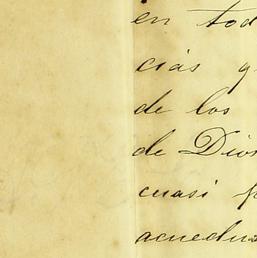 en tod
cias y
de los
de Dios
cuasi p
acuedu